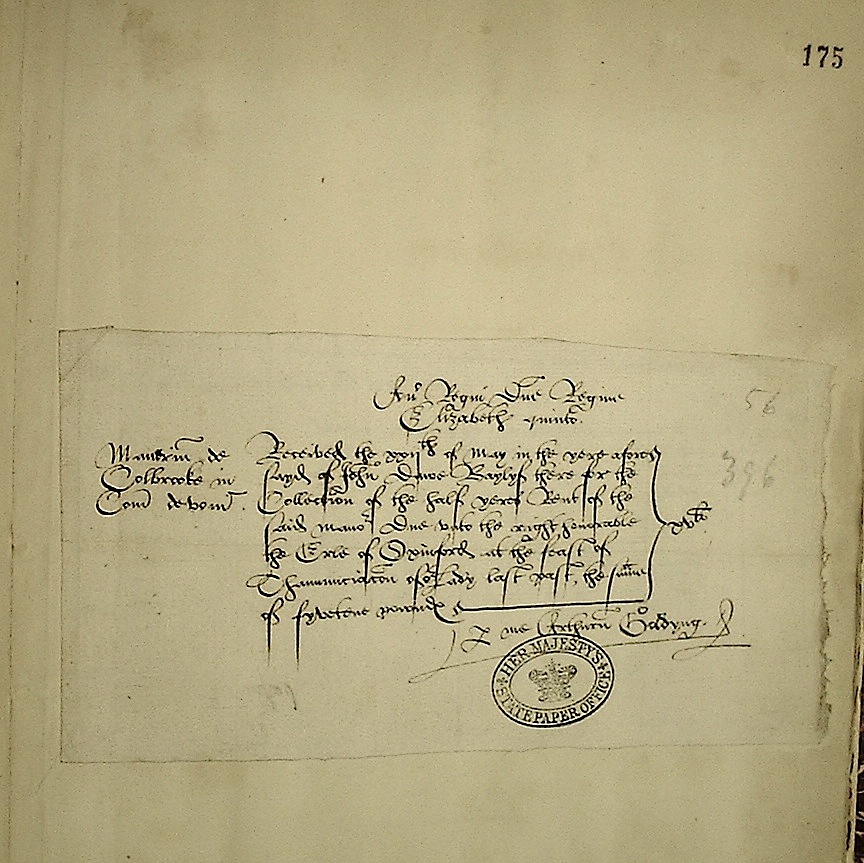 175
Anno Regni Dne Regine
Elizabeth quinto.
56
396
Manerium de
Colbrooke in
Com devon
Received the xxiith of May in the yere afore
sayd of John Dawe Baylyf there for the
Collection of the half yeres Rent of the
said manor Due unto the right honorable
the Erle of Oxinford at the feast of
Thannunciacon of or Lady last past, the summe
of fyvetene powndes
xvli
me Arthurum Goldyng.
HER MAJESTY'S
STATE PAPER OFFICE